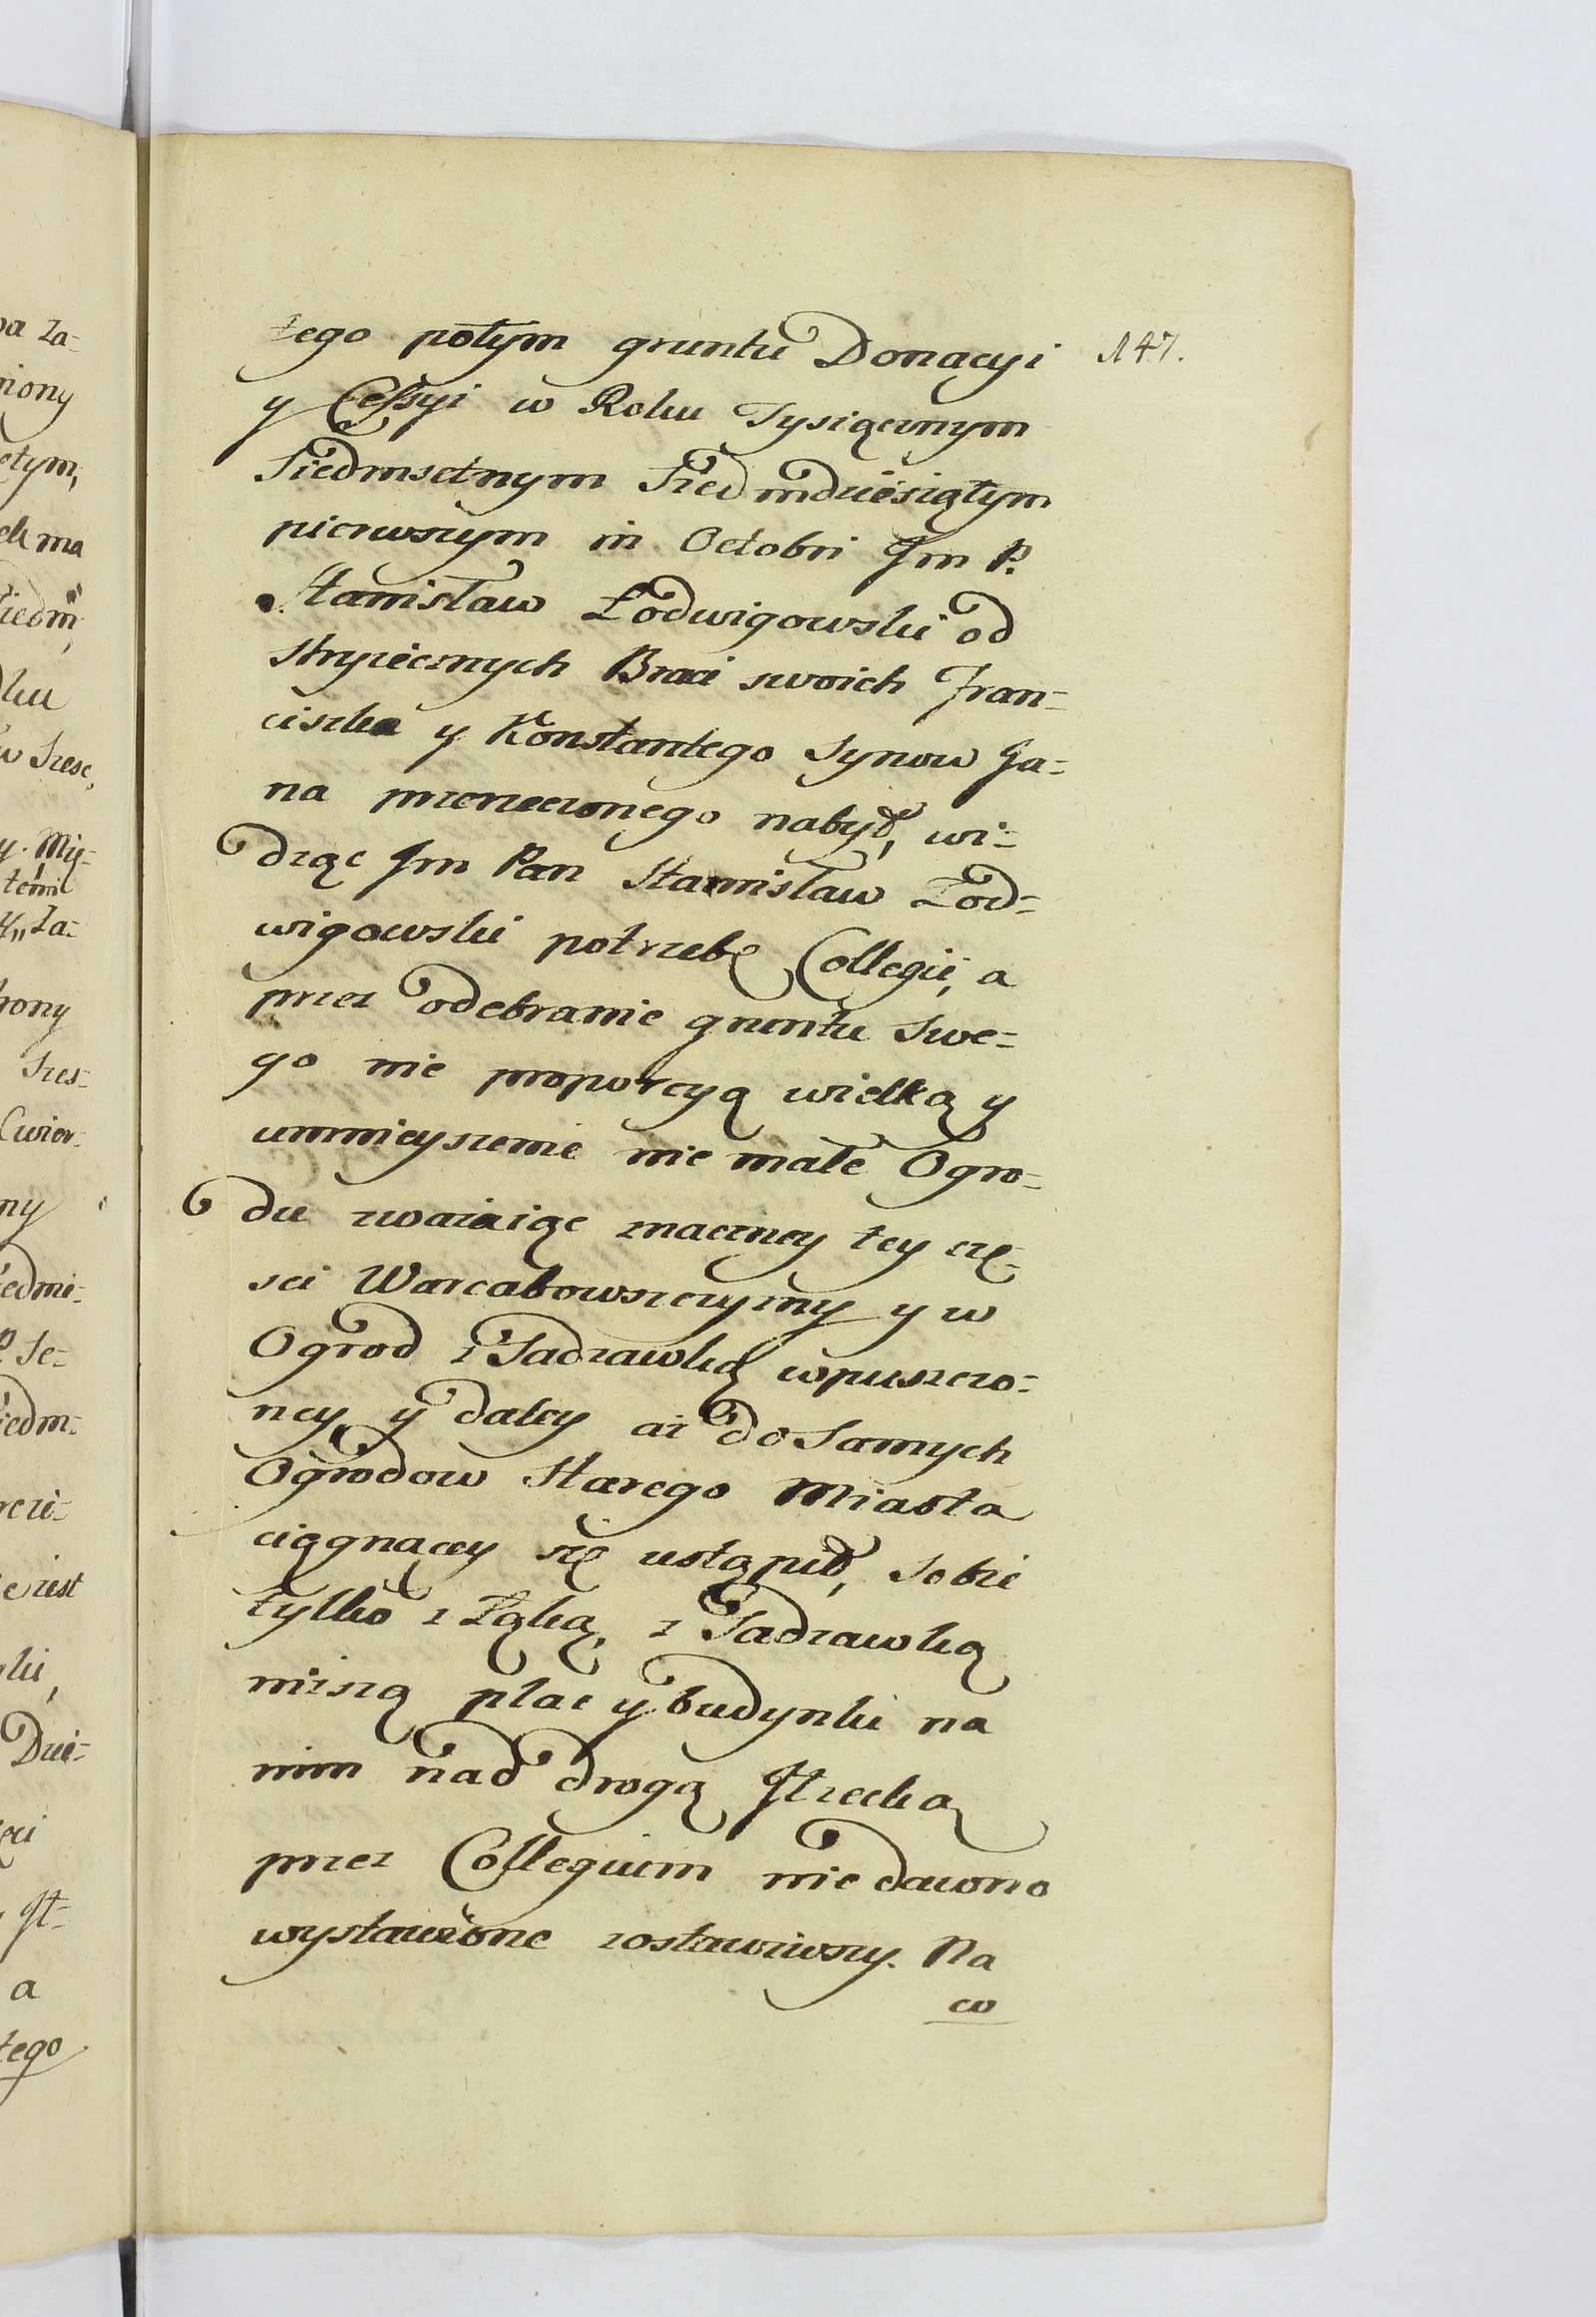 147.
tego potym gruntu Donacyi
y Cessyi w Roku Tysiącznym
Siedmsetnym Siedmdziesiątym
pierwszym in Octobri Jm P.
Stanisław Łodwigowski od
stryiecznych Braci swoich Fran-
ciszka y Konstantego Synow Ja-
na przerzeczonego nabył, wi-
dząc Jm Pan Stanisław Łod-
wigowski potrzebę Collegii, a
przez odebranie gruntu Swe-
go nie proporcyą wielką y
umnieyszenie nie małe Ogro-
du zważaiąc znaczney tey czę-
sci Warcabowszczyzny y w
Ogrod z Sadzawką wpuszczo-
ney, y daley aż do Samych
Ogrodow Starego Miasta
ciągnącey się ustąpił, Sobie
tylko z Łąką, z Sadzawką
niższą plac y budynki na
nim nad drogą Itrecką
przez Collegium nie dawno
wystawione zostawiwszy. Na
co
pa za-
niony
etym,
ek ma
Siedm
dku
w Szesc,
y. Mię-
temi
y,, Za-
rony
Szes-
Cwier-
ny
iedmi-
P. Se-
iedm-
rczi-
e iest
ki,
Dzie-
ęci
It-
a
tego